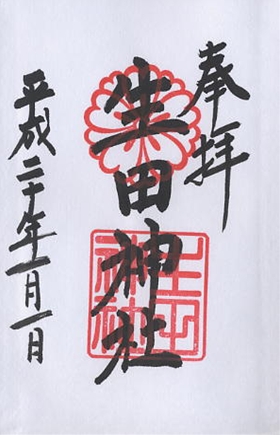 奉拝
生田神社
生田神社
平成二十年一月一日